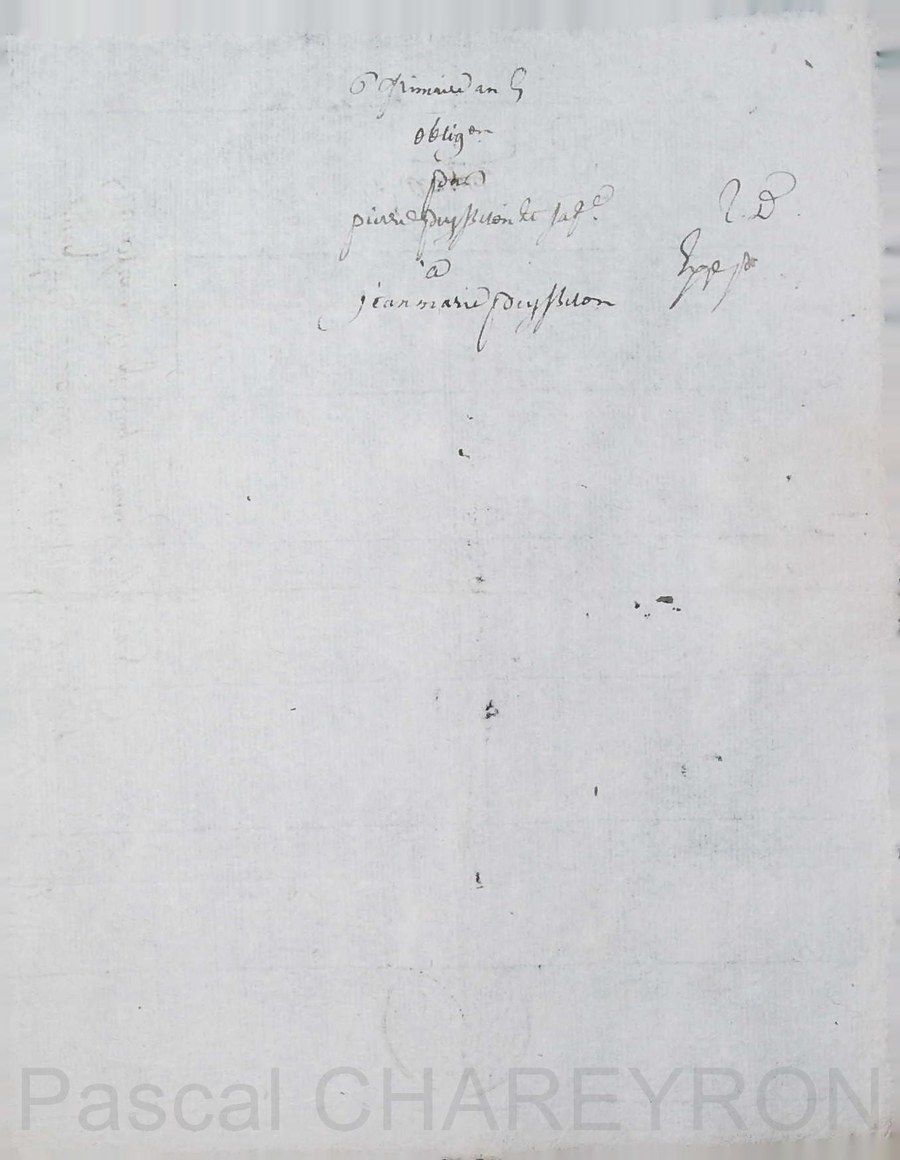 6 frimaire an 5
obligon
par
pierre puyssiton et sa fe
a
jean marie puyssiton
Pascal CHAREYRON